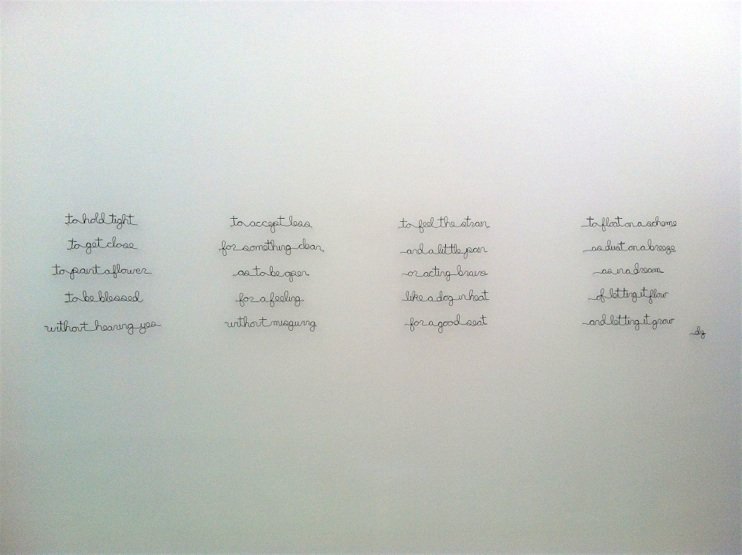 to hold tight
to get close
to paint a flower
to be blessed
without hearing yes
to accept less
for something clear
as to be open
for a feeling
without misgiving
to feel the strain
and a little
or acting brave
like a dog in heat
for a good seat
to float on a scheme
as dust on a breeze
as in a dream
of letting it flow
and letting it grow